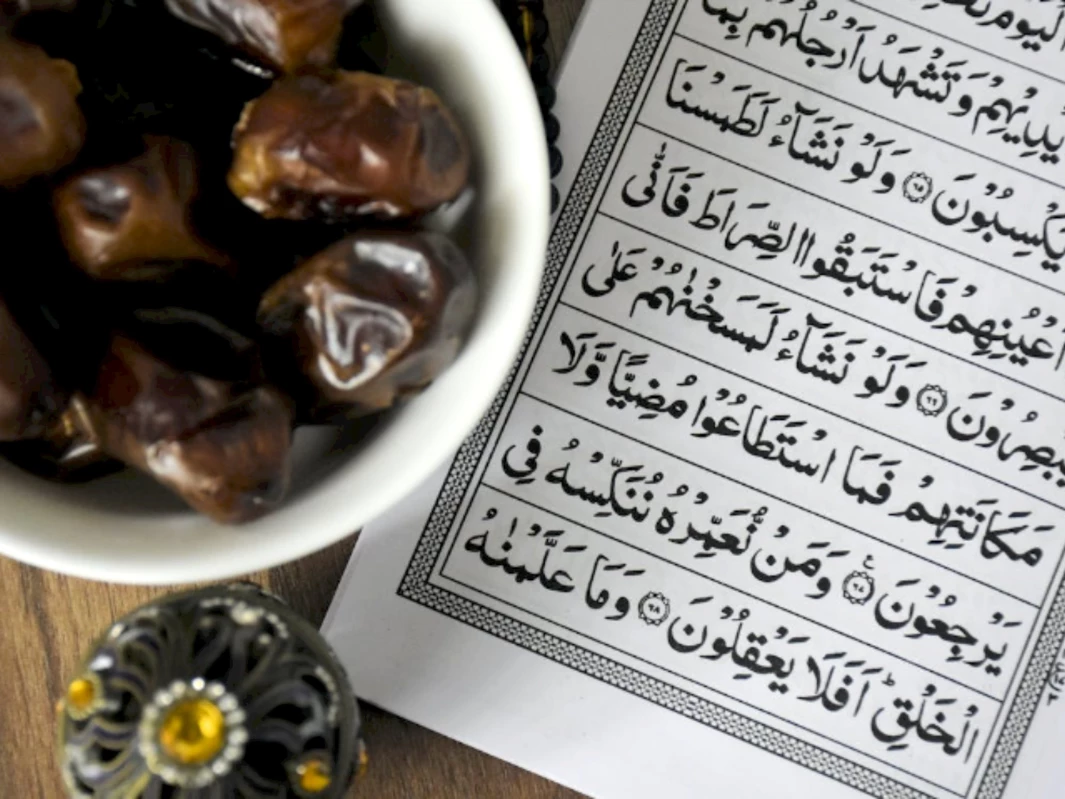 اَلْيَوْمَ
يْدِيْهِمْ وَتَشْهَدُ اَرْجُلُهُمْ بِمَا
يَكْسِبُوْنَ ۝٦٥ وَلَوْ نَشَآءُ لَطَمَسْنَا
اَعْيُنِهِمْ فَاسْتَبَقُوا الصِّرَاطَ فَاَنّٰى
يُبْصِرُوْنَ ۝٦٦ وَلَوْ نَشَآءُ لَمَسَخْنٰهُمْ عَلٰى
مَكَانَتِهِمْ فَمَا اسْتَطَاعُوْا مُضِيًّا وَّلَا
يَرْجِعُوْنَ ۝٦٧ وَمَنْ نُّعَمِّرْهُ نُنَكِّسْهُ فِى
الْخَلْقِ ؕ اَفَلَا يَعْقِلُوْنَ ۝٦٨ وَمَا عَلَّمْنٰهُ